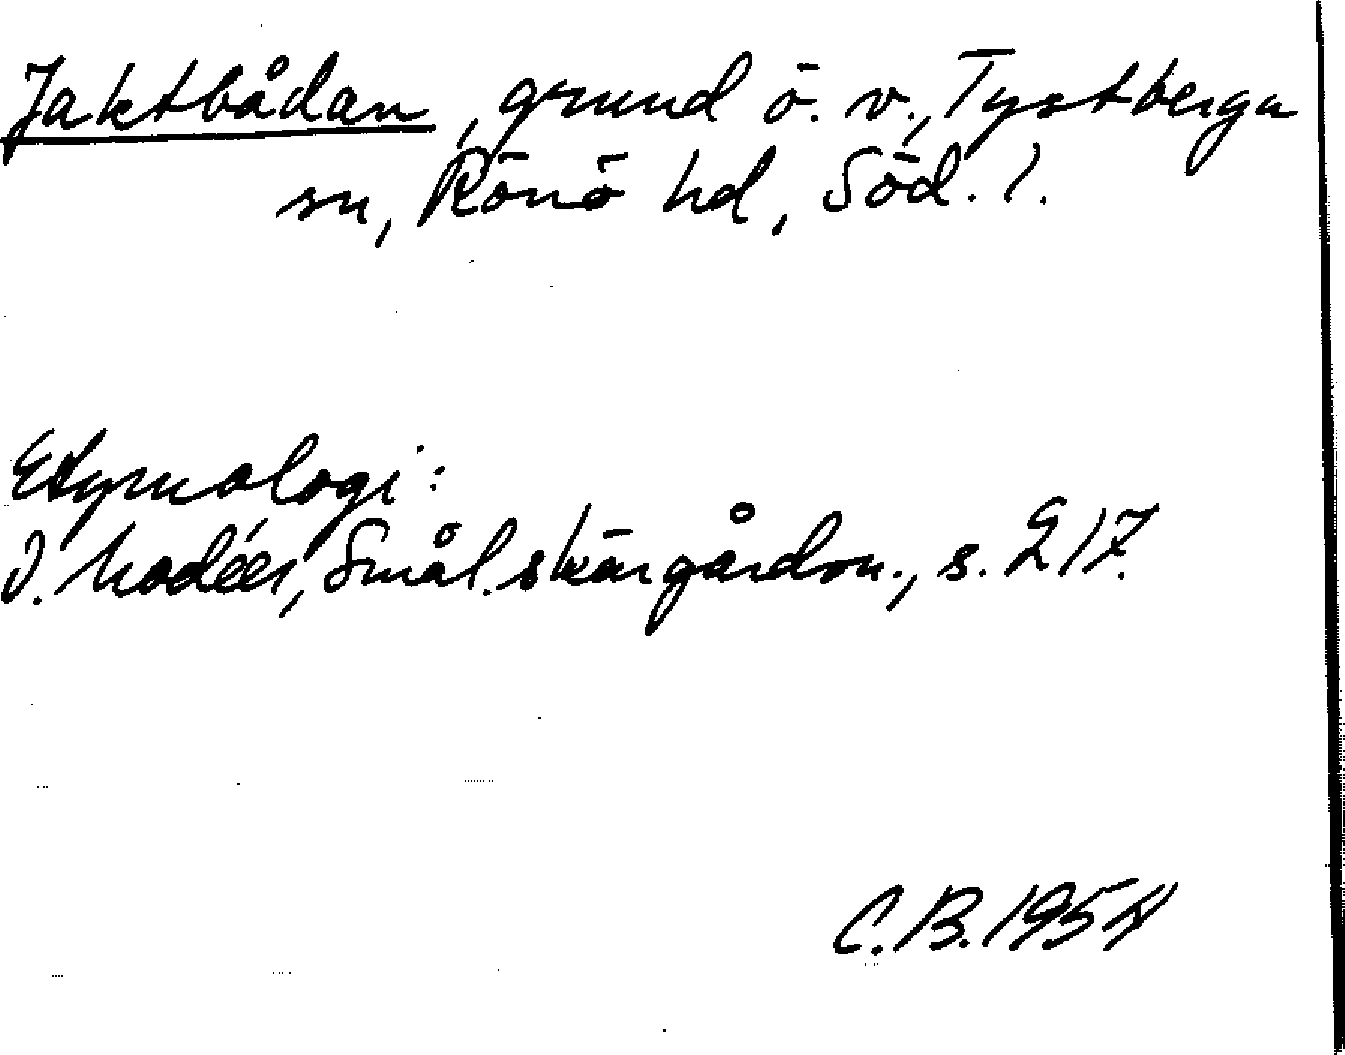 Jaktbådan, grund ö. v., Tystberga
sn, Rönö hd, Söd. l.
Etymologi:
I. Modéer, Smål. skärgårdsn., s. 217.
C.B. 1954